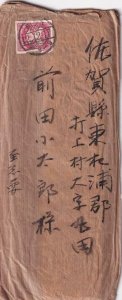 佐賀縣東松浦郡
打上村大字
前田小太郎様